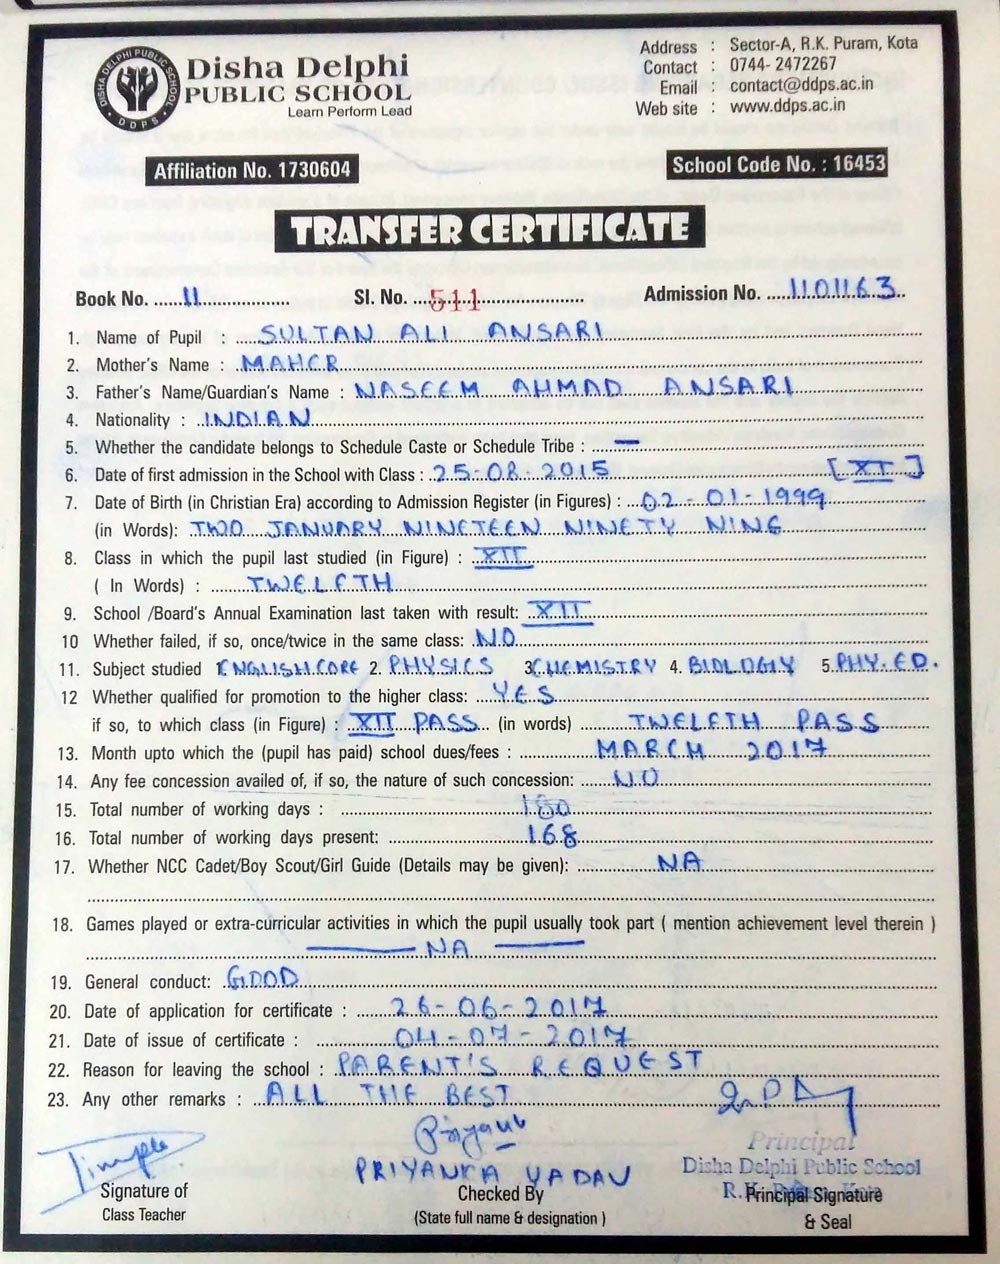 DISHA DELPHI PUBLIC SCHOOL
DDPS
Disha Delphi
PUBLIC SCHOOL
Learn Perform Lead
Address : Sector-A, R.K. Puram, Kota
Contact : 0744- 2472267
Email : contact@ddps.ac.in
Web site : www.ddps.ac.in
Affiliation No. 1730604
School Code No. : 16453
TRANSFER CERTIFICATE
Book No. 11 Sl. No. 511 Admission No. 1101163
1. Name of Pupil : SULTAN ALI ANSARI
2. Mother's Name : MAHER
3. Father's Name/Guardian's Name : NASEEM AHMAD ANSARI
4. Nationality : INDIAN
5. Whether the candidate belongs to Schedule Caste or Schedule Tribe : —
6. Date of first admission in the School with Class : 25-08-2015 [XI]
7. Date of Birth (in Christian Era) according to Admission Register (in Figures) : 02-01-1999
(in Words): TWO JANUARY NINETEEN NINETY NINE
8. Class in which the pupil last studied (in Figure) : XII
( In Words) : TWELFTH
9. School /Board's Annual Examination last taken with result: XII
10 Whether failed, if so, once/twice in the same class: NO
11. Subject studied 1 ENGLISH CORE 2. PHYSICS 3 CHEMISTRY 4. BIOLOGIY 5. PHY. ED.
12 Whether qualified for promotion to the higher class: YES
if so, to which class (in Figure) : XII PASS (in words) TWELFTH PASS
13. Month upto which the (pupil has paid) school dues/fees : MARCH 2017
14. Any fee concession availed of, if so, the nature of such concession: NO
15. Total number of working days : 180
16. Total number of working days present: 168
17. Whether NCC Cadet/Boy Scout/Girl Guide (Details may be given): NA
18. Games played or extra-curricular activities in which the pupil usually took part ( mention achievement level therein )
— NA —
19. General conduct: GOOD
20. Date of application for certificate : 26-06-2017
21. Date of issue of certificate : 04-07-2017
22. Reason for leaving the school : PARENT'S REQUEST
23. Any other remarks : ALL THE BEST
Principal
Disha Delphi Public School
PRIYANKA YADAV
Signature of
Class Teacher
Checked By
(State full name & designation )
Principal Signature
& Seal